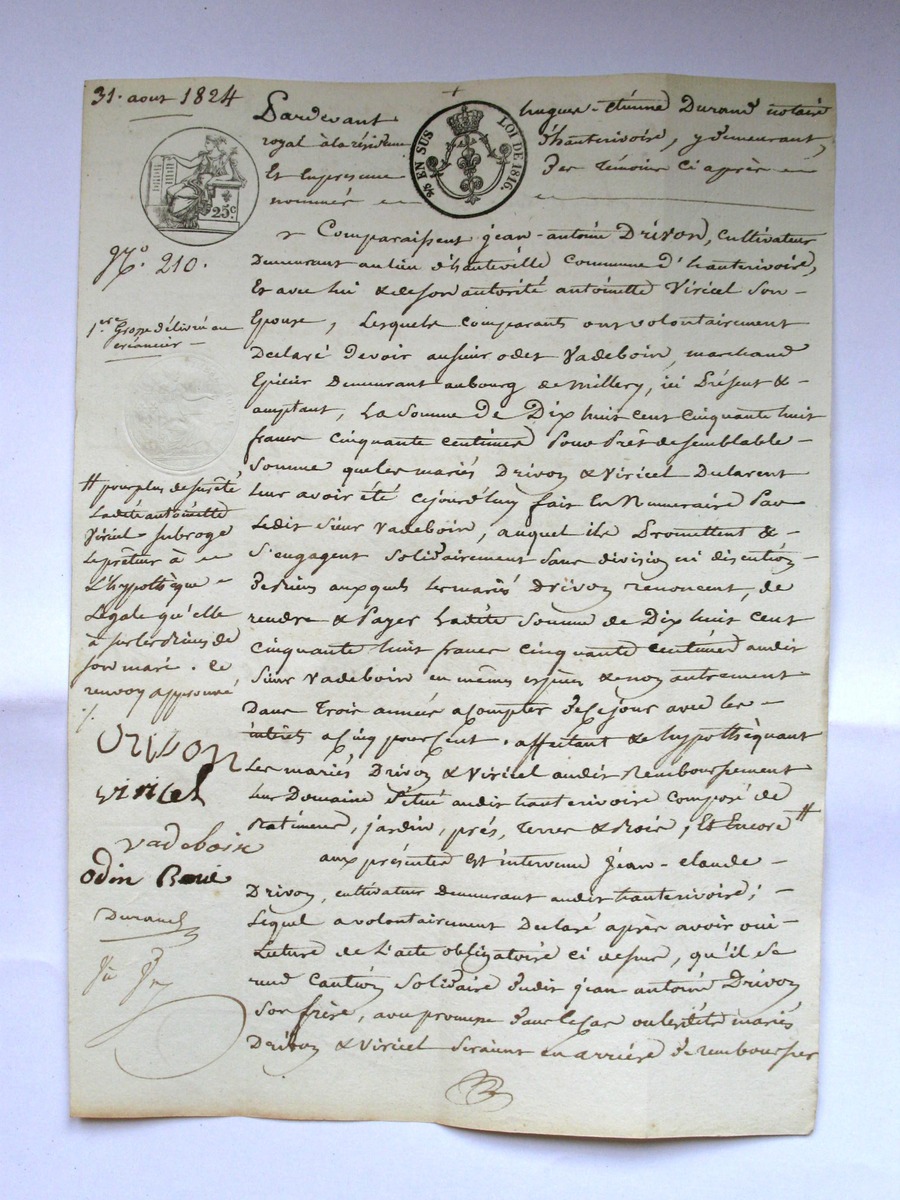 31. aout 1824
Pardevant hugues-étienne Durand notaire
royal à la résidence d'hauterivoire, y demeurant,
Et en presence des témoins ci après
nommés
25 c.
2/5 EN SUS LOI DE 1816.
N.º 210.
1ere Grosse délivrée au
créancier
Comparaissent jean-antoine Drivon, cultivateur
demeurant au lieu d'hauteville commune d'hauterivoire,
Et avec lui & de son autorité antoinette Viricel son
Epouse, Lesquels comparants ont volontairement
Declaré devoir au sieur odet Vadeboin, marchand
Epicier demeurant au bourg de Millery, ici Présent &
acceptant, La Somme De Dix huit cent cinquante huit
francs cinquante centimes Pour Prêt de semblable
Somme que les mariés Drivon & Viricel Déclarent
leur avoir été cejourd'huy fait En Numeraire Par
Ledit Sieur Vadeboin, auquel ils Promettent &
S'engagent Solidairement Sans division ni discution
des biens auxquels les mariés Drivon renoncent, de
rendre & Payer Ladite Somme de Dix huit cent
cinquante huit francs cinquante centimes audit
Sieur Vadeboin en mêmes espèces & non autrement
Dans Trois années acompter de ce jour avec les
intérêts a cinq pour cent. affectant & hypothéquant
Les mariés Drivon & Viricel audit Remboursement
leur Domaine Situé audit hauterivoire composé de
Batiments, jardin, prés, terres & bois; Et Encore #
aux présentes Est intervenu Jean-claude
Drivon, cultivateur demeurant audit hauterivoire;
Lequel a volontairement Declaré après avoir oui
Lecture de L'acte obligatoire ci dessus, qu'il se
rend Caution Solidaire dudit jean antoine Drivon
Son frère, avec promesse dans le cas ou lesdits mariés
Drivon & Viricel seraient en arrière de rembourser
# pour plus de sureté
Ladite antoinette
Viricel subroge
Le prêteur à
L'hypothèque
Légale qu'elle
à sur les biens de
son mari. ce
renvoy approuvé
Drivon
viricel
vadeboin
odin
Durand